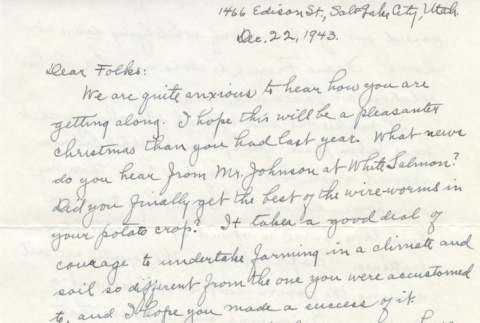 1466 Edison St., Salt Lake City, Utah.
Dec. 22, 1943.
Dear Folks:
We are quite anxious to hear how you are
getting along. I hope this will be a pleasanter
christmas than you had last year. What news
do you hear from Mr. Johnson at White Salmon?
Did you finally get the best of the wire-worms in
your potato crop? It takes a good deal of
courage to undertake farming in a climate and
soil so different from the one you were accustomed
to, and I hope you made a success of it